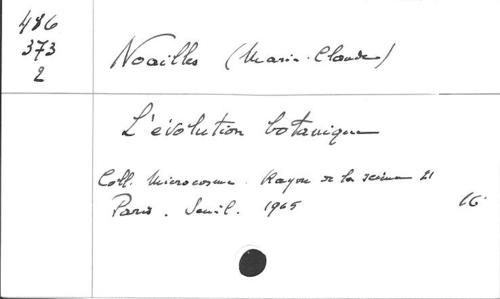 486
373
2
Noailles (Marie-Claude)
L'évolution botanique
Coll. Microcosme. Rayon de la science 21
Paris. Seuil. 1965 16°